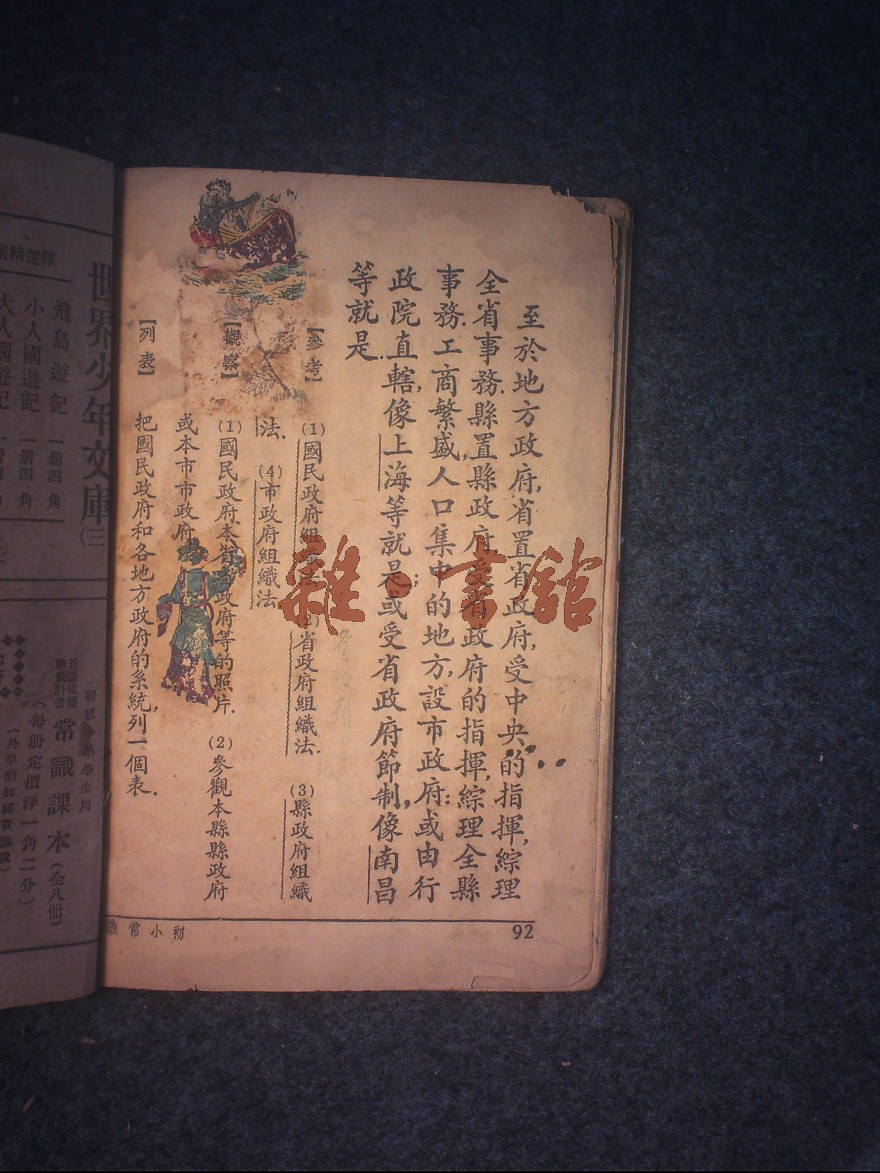 至於地方政府,省置省政府,受中央的指揮,綜理
全省事務.縣置縣政府,受省政府的指揮,綜理全縣
事務.工商繁盛,人口集中的地方,設市政府:或由行
政院直轄,像上海等就是;或受省政府節制,像南昌
等就是.
【參考】 (1)國民政府組織法. (2)省政府組織法. (3)縣政府組織
法. (4)市政府組織法.
【觀察】 (1)國民政府.本省省政府等的照片. (2)參觀本縣縣政府
或本市市政府.
【列表】 把國民政府和各地方政府的系統,列一個表.
初小常
92
雜·書館
精選擇
世界少年文庫(三
飛鳥遊記 一册四角
小人國遊記 一册四角
大人國遊記
學生用
常識課本(全八冊)
(每册定價洋一角二分)